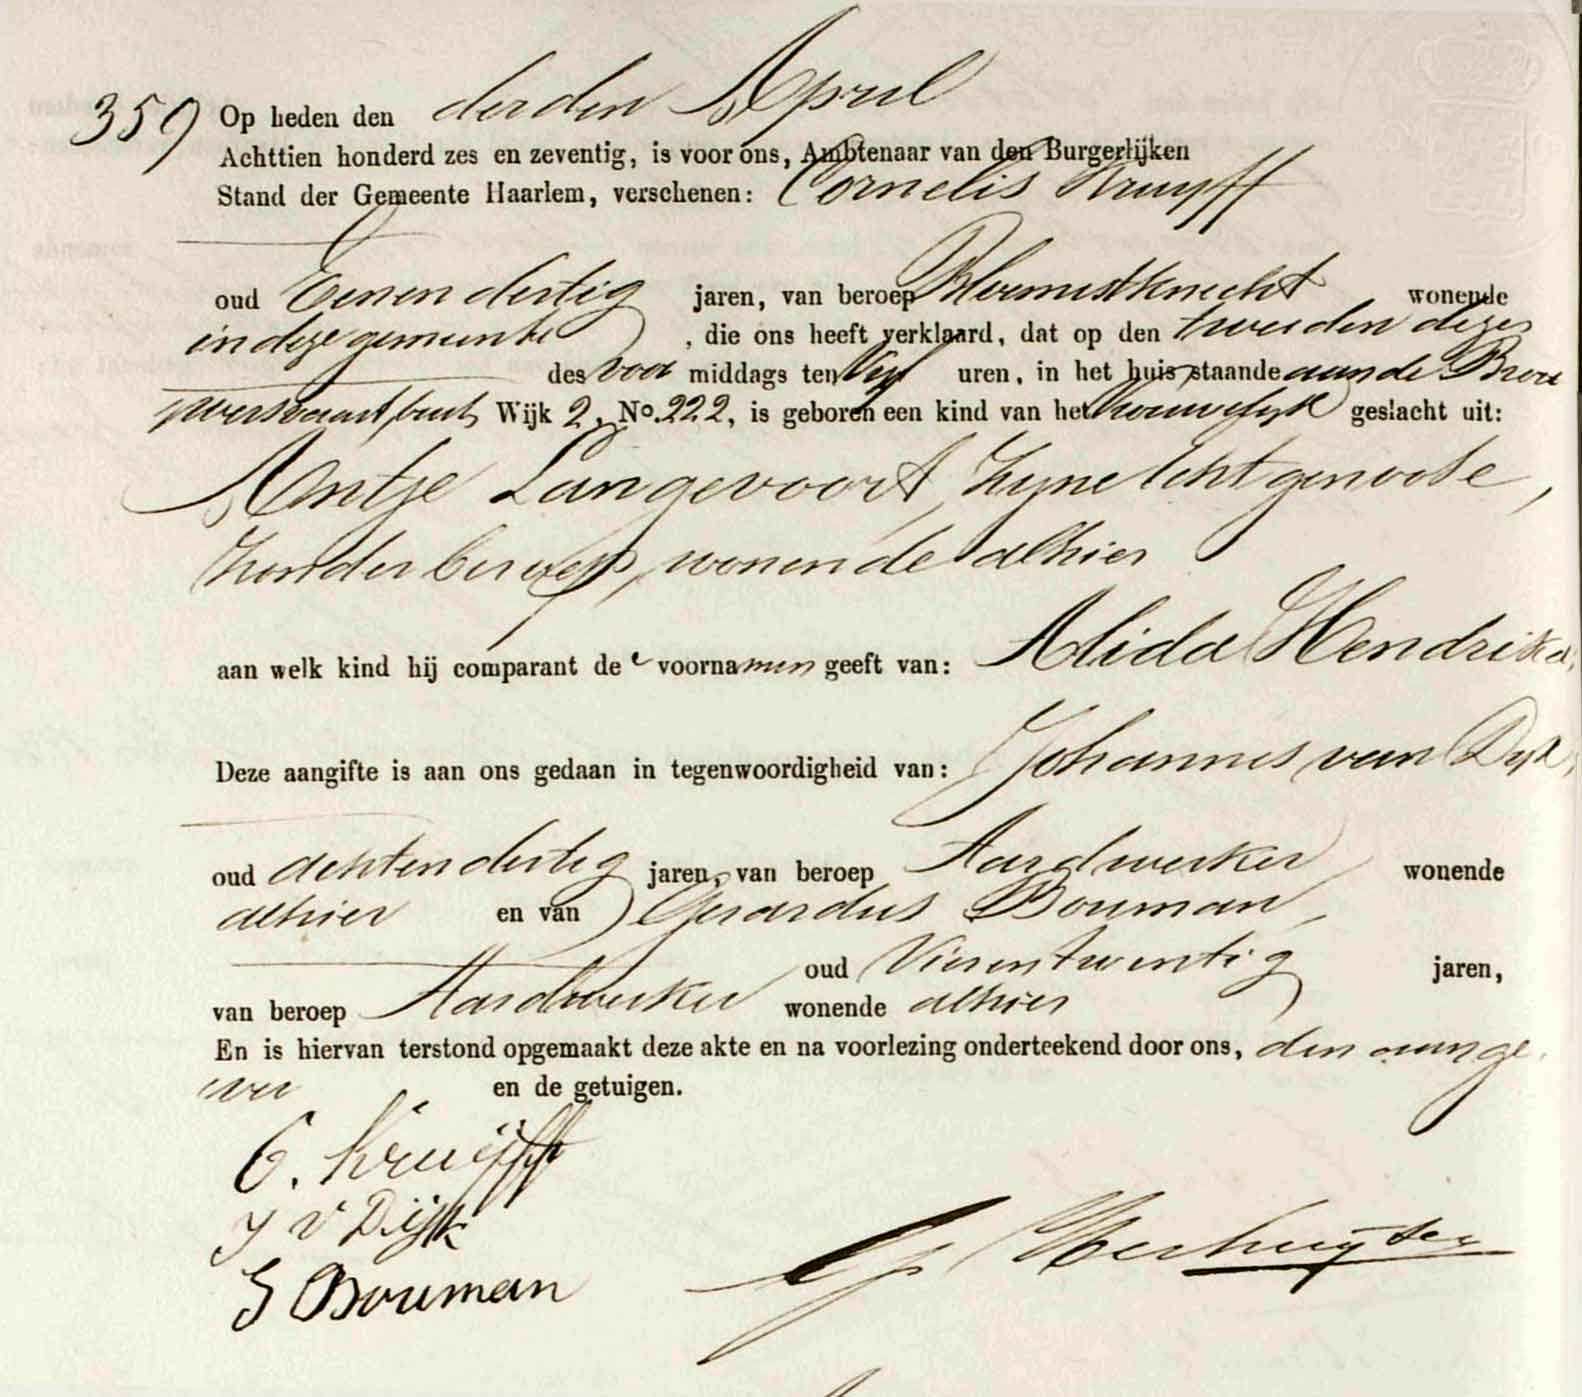 359 Op heden den derden April
Achttien honderd zes en zeventig, is voor ons, Ambtenaar van den Burgerlijken
Stand der Gemeente Haarlem, verschenen: Cornelis Kruyff
oud Eenendertig jaren, van beroep Bloemistknecht wonende
in deze gemeente , die ons heeft verklaard, dat op den tweeden dezer
des voor middags ten vijf uren, in het huis staande aan de Brou
wersvaart buit Wijk 2, No. 222, is geboren een kind van het vrouwelijk geslacht uit:
Antje Langevoort, Zijne Echtgenoote,
Zonder beroep, wonende alhier
aan welk kind hij comparant de e voornamen geeft van: Alida Hendrika.
Deze aangifte is aan ons gedaan in tegenwoordigheid van: Johannes van Dijk,
oud achtendertig jaren, van beroep Aardwerker wonende
alhier en van Gerardus Bouman,
oud Vierentwentig jaren,
van beroep Aardwerker wonende alhier
En is hiervan terstond opgemaakt deze akte en na voorlezing onderteekend door ons, den aange
ver en de getuigen.
C. Kruijff
J v Dijk
G Bouman